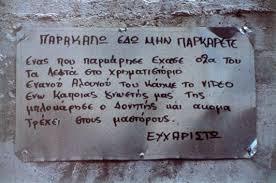 ΠΑΡΑΚΑΛΩ ΕΔΩ ΜΗΝ ΠΑΡΚΑΡΕΤΕ
Ενας που παρκάρησε έχασε όλα του
Τα λεφτά στο χρηματιστήριο
Ενανού Αλουνού του κάηκε το VIDEO
Ενω κάποιας γνωστής μας της
μπλοκάρησε ο Δονητής και ακομα
Τρέχει στους μαστόρους.
ΕΥΧΑΡΙΣΤΩ